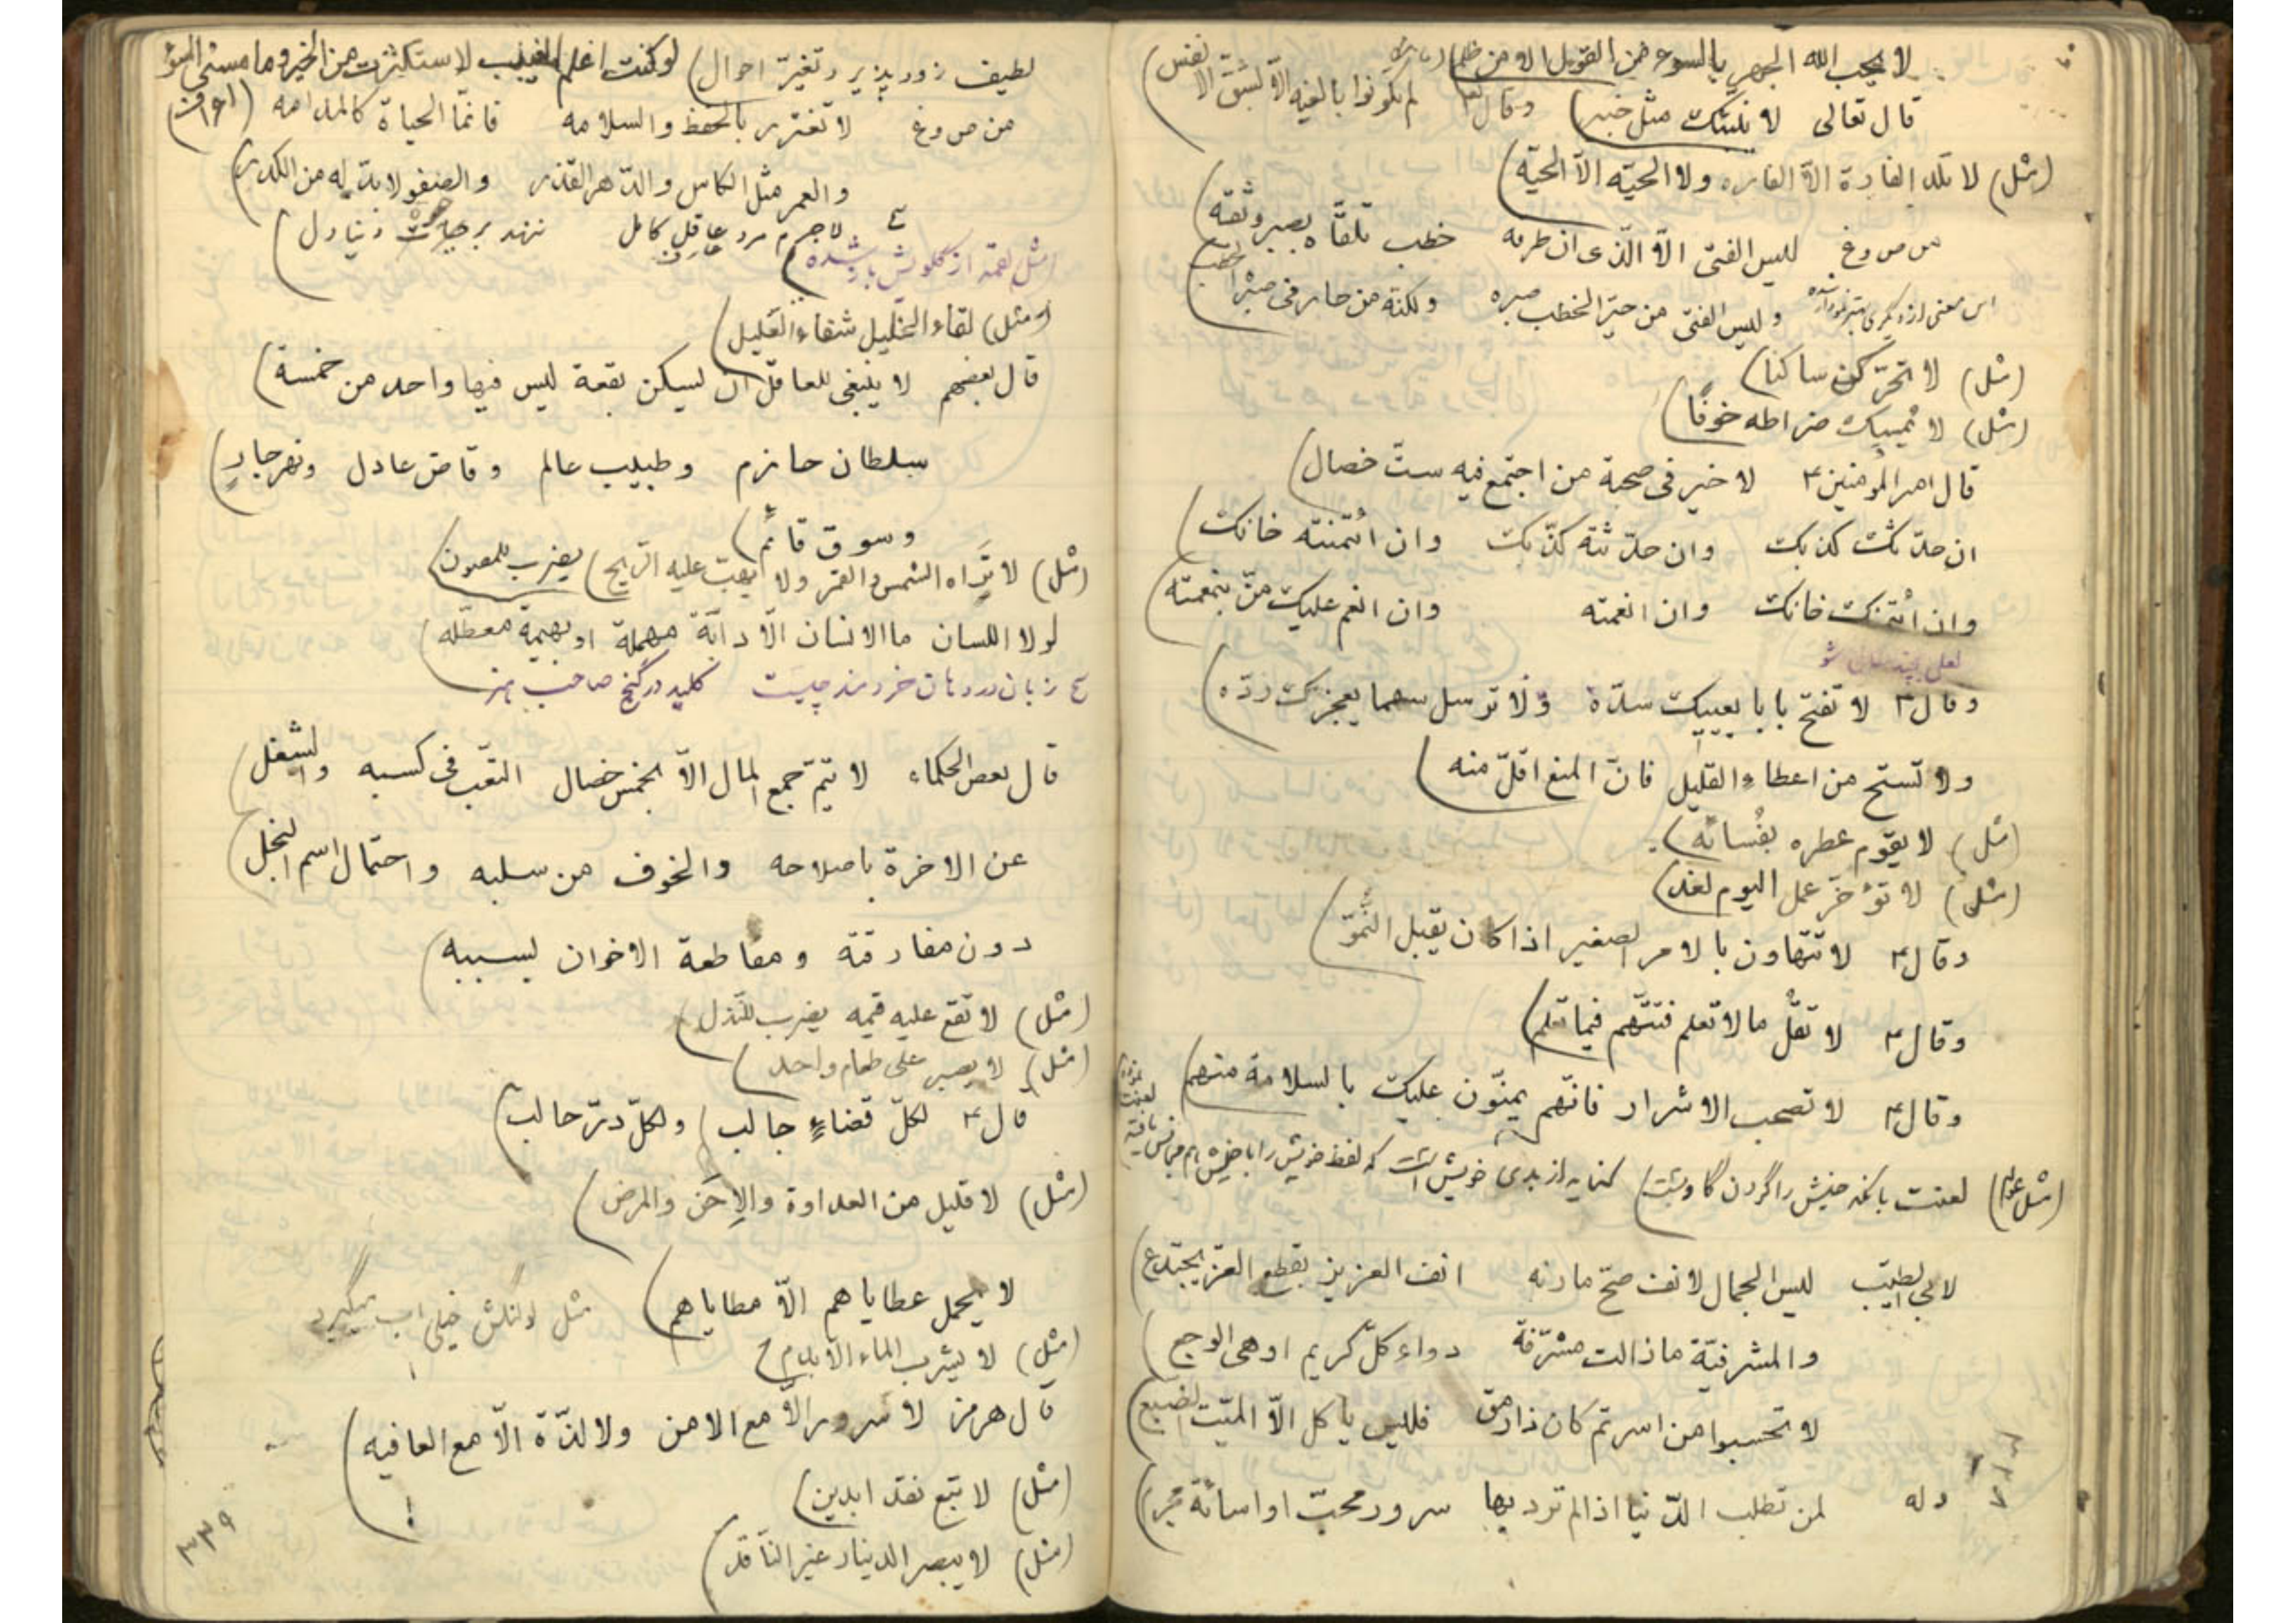 لا یحب الله الجهر بالسوء من القول الا من ظلم
قال تعالی لا ینبئک مثل خبیر) وقال لم تکونوا بالغیه الّا بشقّ الانفس)
(مثل) لا تلد الفارة الّا الفاره ولا الحیّه الّا الحیّه)
من ص و غ لیس الفتی الّا الّذی ان طرقه خطب تلقّاه بصبر وثقه)
این معنی از دیگری ولیس الفتی من حیّر الخطب صبره ولکنّه من حار فی صبر الخطب)
(مثل) لا تحرّکن ساکنا)
(مثل) لا یمسک ضراطه خوفًا)
قال امیر المؤمنین ۴ لا خیر فی صحبة من اجتمع فیه ستّ خصال)
ان حدّثک کذبک وان حدّثته کذّبک وان ائتمنته خانک)
وان ائتمنک خانک وان انعمته وان انعم علیک منّ بنعمته)
وقال ۴ لا تفتح بابا یعییک سدّه ولا ترسل سهما یعجزک ردّه)
ولا تستح من اعطاء القلیل فانّ المنع اقلّ منه)
(مثل) لا یقوم عطره بفسائه)
(مثل) لا تؤخّر عمل الیوم لغد)
وقال ۴ لا تتهاون بالامر الصغیر اذا کان یقبل النّموّ)
وقال ۴ لا تقلْ ما لا تعلم فتتّهم فیما تعلم)
وقال ۴ لا تصحب الاشرار فانّهم یمنّون علیک بالسلامة منهم)
(مثل عوام) لعنت بانکه خیش را گردن گاو بست) کنایه از بدی خویش است که لفظ خویش را با خیش هم
لابی الطیّب لیس الجمال لانف صحّ مارنه انف العزیز بقطع العزّ یجتدع)
والمشرفیّة مازالت مشرّفة دواء کلّ کریم او هی الوجع)
لا تحسبوا من اسرتم کان ذا رمق فلیس یاکل الّا المیّت الضبع)
وله لمن تطلب الدّنیا اذا لم ترد بها سرور محبّ او اسائة مجرم)
لطیف زود پذیر و تغیّر احوال) لو کنت اعلم الغیب لاستکثرت من الخیر وما مسنی السوء
من ص و غ لا تغترر بالحفظ والسلامه فانّما الحیاة کالمدامه (اعراف)
والعمر مثل الکاس والدّهر القذر والصفو لابدّ له من الکدر)
لاجرم مرد عاقل کامل ننهد بر حیات دنیا دل)
(مثل لقمه از گلویش باز شده)
(مثل) لقاء الخلیل شفاء الغلیل)
قال بعضهم لا ینبغی للعاقل ان یسکن بقعة لیس فیها واحد من خمسة)
سلطان حازم وطبیب عالم وقاض عادل ونهر جارٍ)
وسوق قائم)
(مثل) لا یراه الشمس والقمر ولا یهبّ علیه الرّیح) یضرب للمصون)
لولا اللسان ما الانسان الّا دابّة مهملة او بهیمة معطّله)
زبان در دهان خردمند چیست کلید در گنج صاحب هنر
قال بعض الحکماء لا یتمّ جمع المال الّا بخمس خصال التعب فی کسبه والشغل)
عن الاخرة باصلاحه والخوف من سلبه واحتمال اسم البخل)
دون مفارقته ومقاطعة الاخوان بسببه)
(مثل) لا تقع علیه قیمه یضرب للنّذل)
(مثل) لا یصبر علی طعام واحد)
قال ۴ لکلّ قضاءٍ جالب) ولکلّ درّ حالب)
(مثل) لا قلیل من العداوة والاحن والمرض)
لا یحمل عطایاهم الّا مطایاهم) مثل لولنگش خیلی اب میگیرد
(مثل) لا یشرب الماء الّا بدم)
قال هرمز لا سرور الّا مع الامن ولا لذّة الّا مع العافیه)
(مثل) لا تبع نقدا بدین)
(مثل) لا یبصر الدینار غیر النّاقد)
۳۳۹